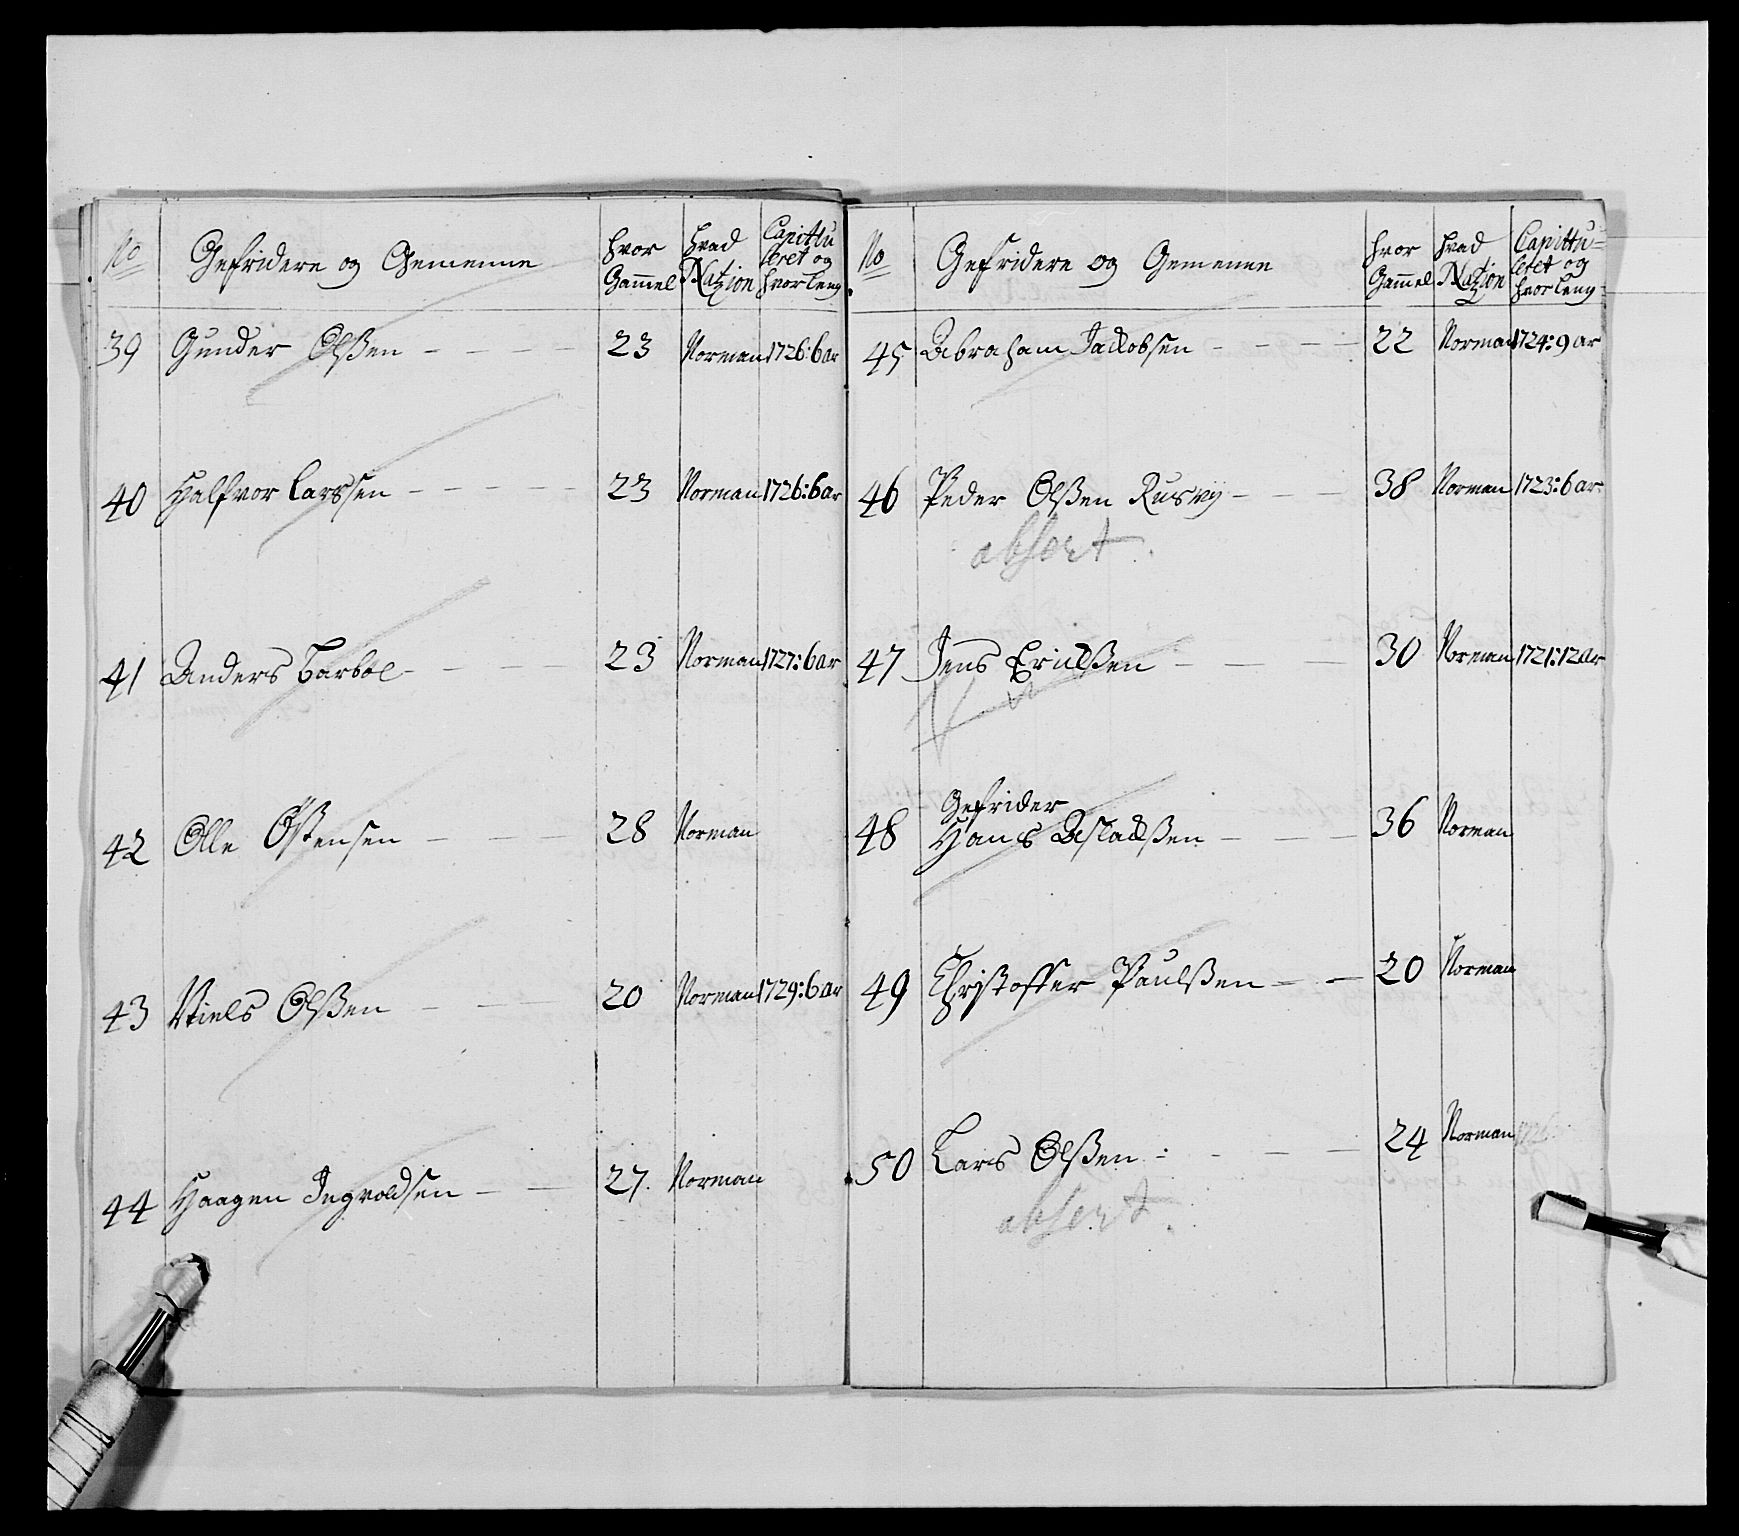 No Gefridere og Gemeenne hvor Gammel hvad Natzion Capittuleret og hvor leng
39 Gunder Olßen 23 Norman 1726: 6 ar
40 Halfvor Larssen 23 Norman 1726: 6 ar
41 Anders Barboe 23 Norman 1727: 6 ar
42 Olle Østensen 28 Norman
43 Niels Olßen 20 Norman 1729: 6 ar
44 Haagen Ingvoldsen 27. Norman
No Gefridere og Gemeenne hvor Gammel hvad Natzion Capittuleret og hvor leng
45 Abraham Jackobsen 22 Norman 1724: 9 ar
46 Peder Olßen 38 Norman 1723: 6 ar
absent
47 Jens Erichßen 30 Norman 1721: 12 ar
Gefrider
48 Hans Aslachßen 36 Norman
49 Christoffer Paulßen 20 Norman
50 Lars Olßen 24 Norman
absent